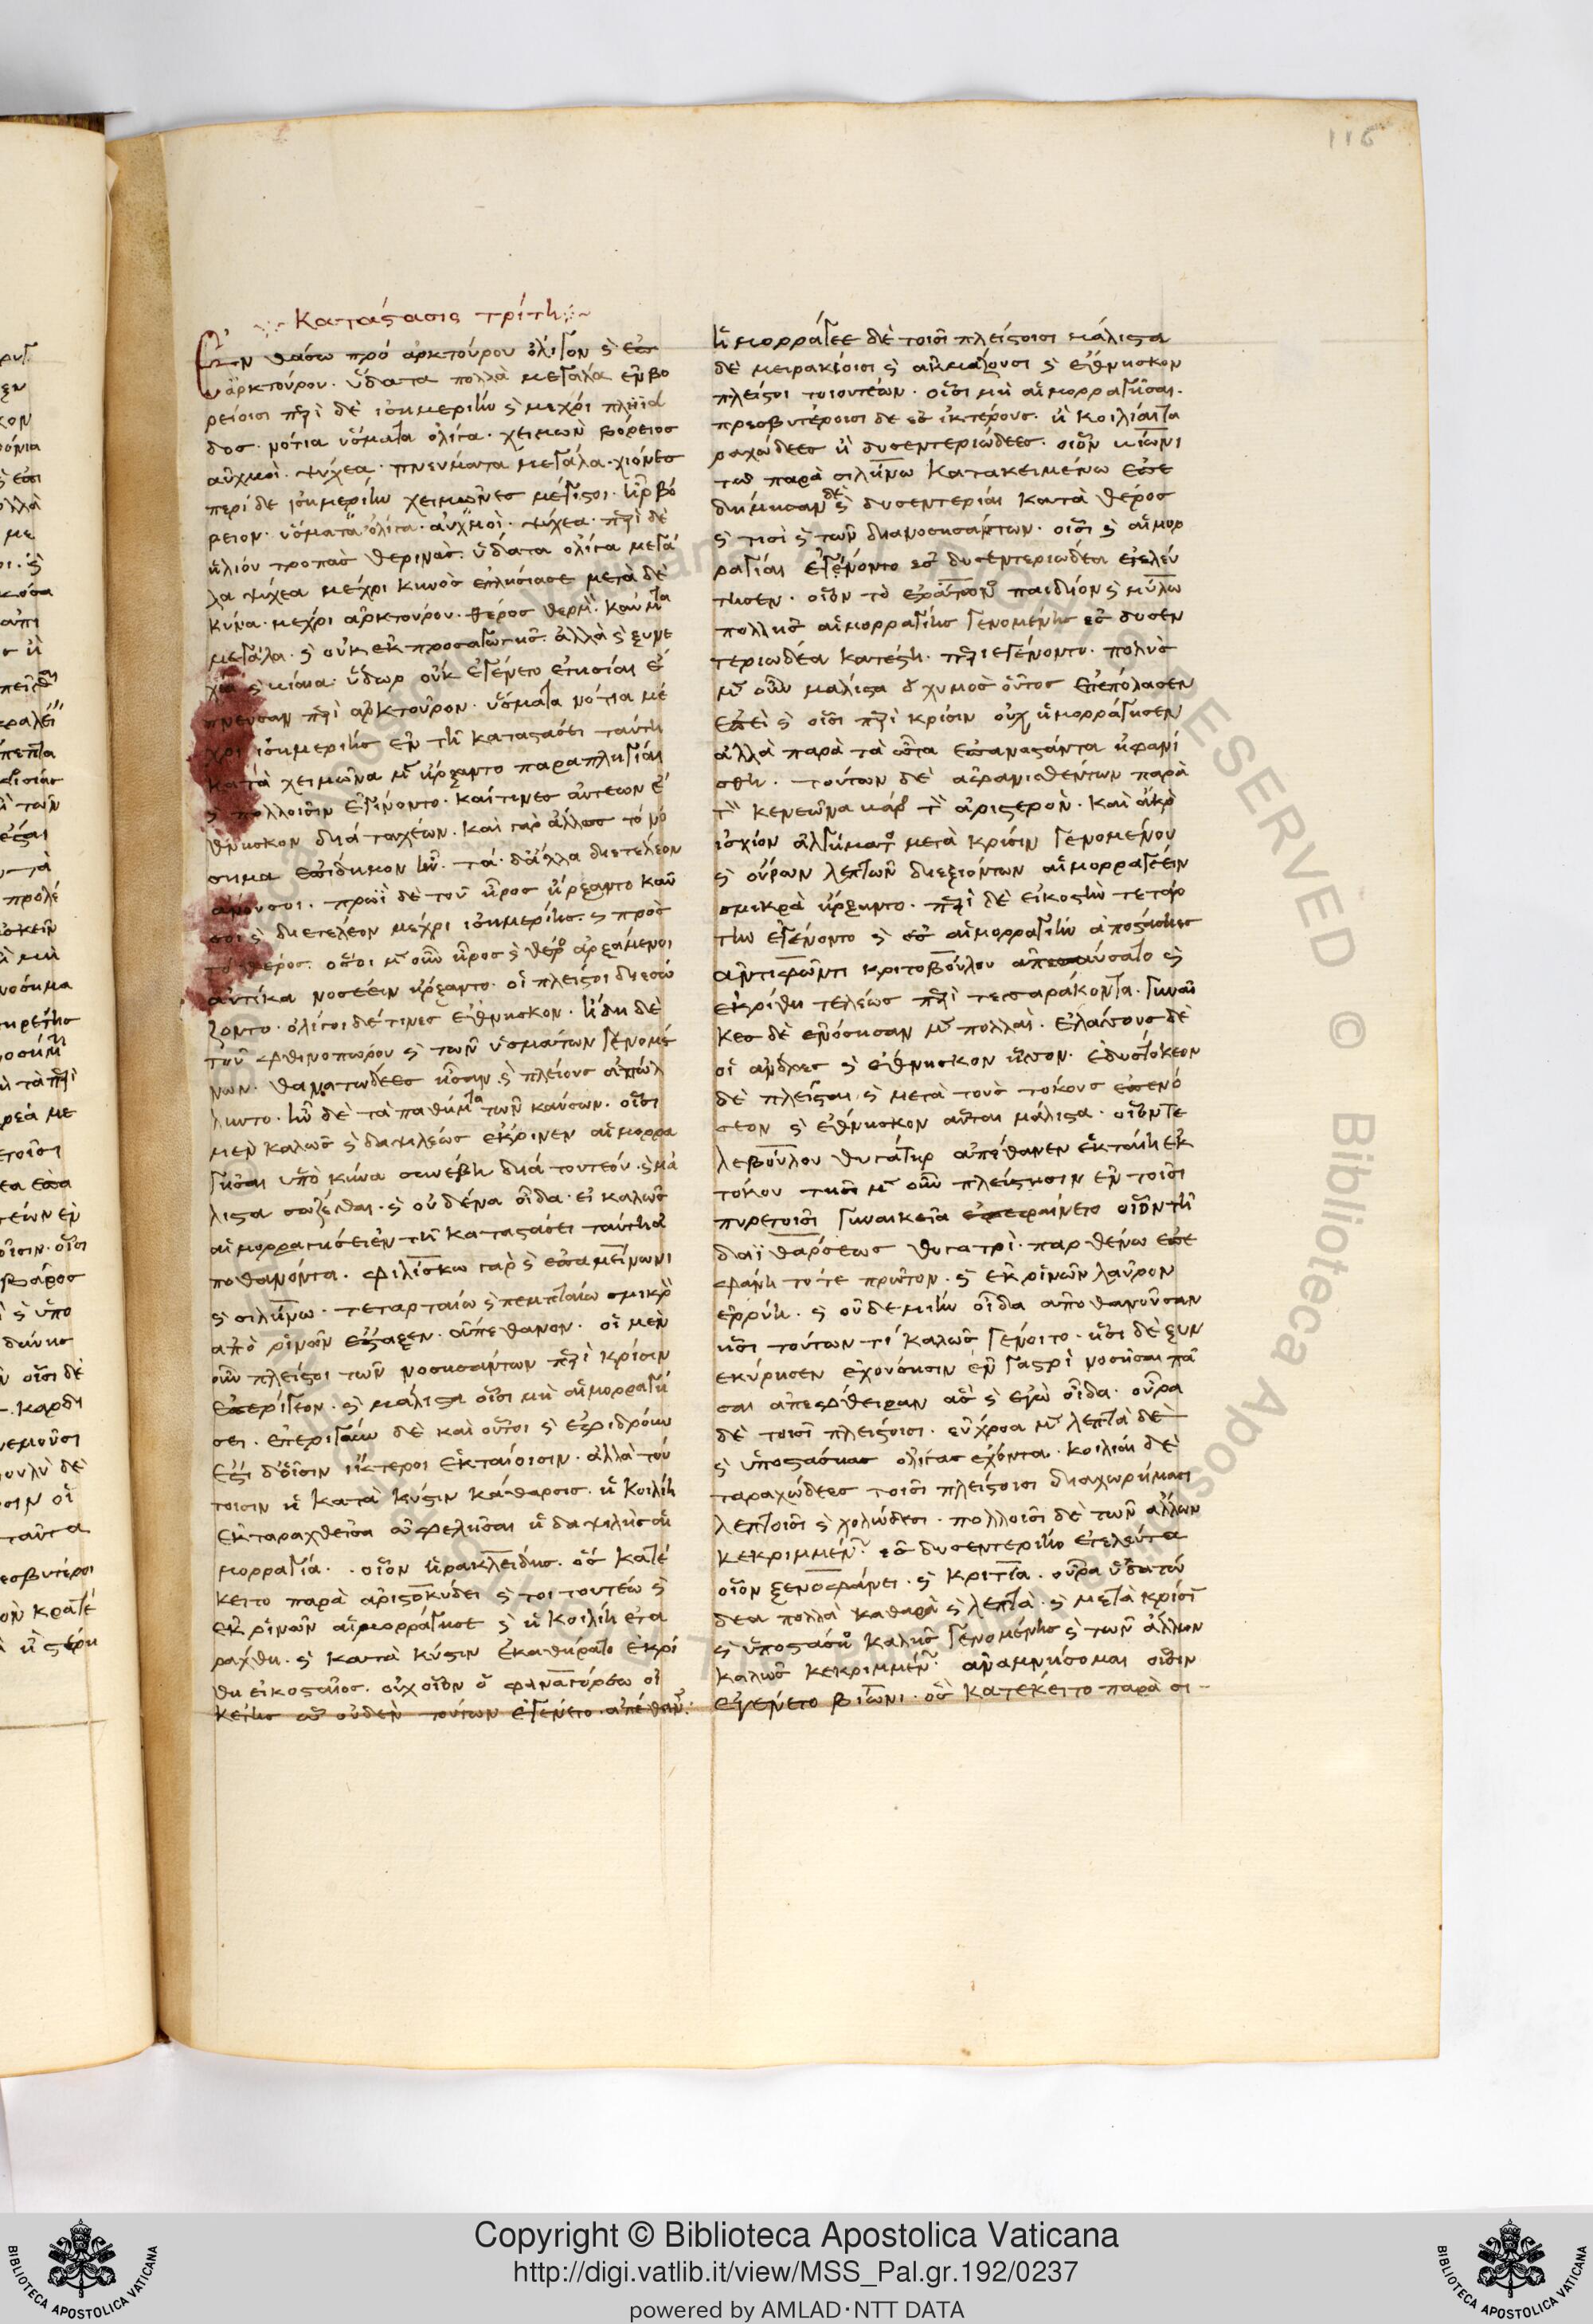 116
Κατάστασις τρίτη
Ἐν θάσω πρὸ ἀρκτούρου ὀλίγον καὶ ἐπ
ἀρκτούρου. ὕδατα πολλὰ μεγάλα ἐν βο
ρείοισι περὶ δὲ ἰσημερίην καὶ μέχρι πληϊά
δος. νότια ὕσματα ὀλίγα. χειμὼν βόρειος
αὐχμοὶ. ψύχεα. πνεύματα μεγάλα. χιόνες
περὶ δὲ ἰσημερίην χειμῶνες μέγιστοι. ἦρ βό
ρειον. ὕσματα ὀλίγα. αὐχμοὶ. ψύχεα. περὶ δὲ
ἡλίου τροπὰς θερινὰς. ὕδατα ὀλίγα μεγά
λα ψύχεα μέχρι κυνὸς ἐπλησίασε μετὰ δὲ
κύνα. μέχρι ἀρκτούρου. θέρος θερμὸ. καύματα
μεγάλα. καὶ οὐκ ἐκ προσαγωγῆς. ἀλλὰ καὶ ξυνε
χέα καὶ βίαια. ὕδωρ οὐκ ἐγένετο ἐτησίαι ἔ
πνευσαν περὶ ἀρκτοῦρον. ὕσματα νότια μέ
χρι ἰσημερίης ἐν τῆ καταστάσει ταύτη
κατὰ χειμῶνα μὲν ἤρξαντο παραπληγίαι
καὶ πολλοῖσιν ἐγίνοντο. καί τινες αὐτέων ἔ
θνησκον διὰ ταχέων. καὶ γὰρ ἄλλως τὸ νό
σημα ἐπίδημον ἦν. τὰ δ ἄλλα διετέλεον
ἄνουσοι. πρωῒ δὲ τοῦ ἦρος ἤρξαντο καῦ
σοι καὶ διετέλεον μέχρι ἰσημερίης. καὶ πρὸς
τὸ θέρος. ὅσοι μὲν οὖν ἦρος καὶ θέρο ἀρξάμενοι
αὐτίκα νοσέειν ἤρξαντο. οἱ πλεῖστοι διεσώ
ζοντο. ὀλίγοι δέ τινες ἔθνησκον. ἤδη δὲ
τοῦ φθινοπώρου καὶ τῶν ὑσμάτων γενομέ
νων. θανατώδεες ἦσαν. καὶ πλείους ἀπώλ
λυντο. ἦν δὲ τὰ παθήματα τῶν καύσων. οἷσι
μὲν καλῶς καὶ δαψιλέως ἐκρινεν αἱμορρα
γῆσαι ὑπὸ κύνα συνέβη διὰ τουτέον. καὶ μά
λιστα σώζεσθαι. καὶ οὐδένα οἶδα. εἰ καλῶς
αἱμορραγήσειεν τῆ καταστάσει ταύτη ἀ
ποθανόντα. φιλίσκω γὰρ καὶ ἐπαμείνωνι
καὶ σιλήνω. τεταρταίω καὶ πεμπταίω σμικρὸ
ἀπὸ ῥινῶν ἔσταξεν. ἀπέθανον. οἱ μὲν
οὖν πλεῖστοι τῶν νοσησάντων περὶ κρίσιν
ἐπερίγεον. καὶ μάλιστα οἷσι μὴ αἱμορραγή
σει. ἐπερίγουν δὲ καὶ οὗτοι καὶ ἐφιδρόων
ἔστι δ οἷσιν ἴκτεροι ἑκταίοισιν. ἀλλὰ τού
τοισιν ἢ κατὰ κύστιν κάθαρσις. ἢ κοιλίη
ἐκταραχθεῖσα ὠφελῆσαι ἢ δαψιλὴς αἱ
μορραγία. οἷον ἡρακλείδης. ὃς κατέ
κειτο παρὰ ἀριστοκύδει καὶ τοι τουτέω καὶ
ἐκ ῥινῶν αἱμορράγησε καὶ ἡ κοιλίη ετα
ράχθη. καὶ κατὰ κύστιν ἐκαθήρατο ἐκρί
θη εἰκοσταῖος. οὐχ οἷον ὁ φαναγόρεω οἰ
κέτης ὧ οὐδὲν τούτων ἐγένετο. ἀπέθανεν.
ἡμορράγεε δὲ τοῖσι πλείστοισι μάλιστα
δὲ μειρακίοισι καὶ ἀκμάζουσι καὶ ἔθνησκον
πλεῖστοι τοιουτέων. οἷσι μὴ αἱμορραγῆσαι.
πρεσβυτέροισι δὲ ἐς ἰκτέρους. ἢ κοιλίαι τα
ραχώδεες ἢ δυσεντεριώδεες. οἷον βίωνι
τω παρὰ σιλήνω κατακειμένω ἐπε
δήμησαν δὲ καὶ δυσεντερίαι κατὰ θέρος
καὶ τισὶ καὶ τῶν διανοσησάντων. οἷσι καὶ αἱμορ
ραγίαι ἐγένοντο ἐς δυσεντεριώδεα ἐτελεύ
τησεν. οἷον τὸ ἐράτωνος παιδίον καὶ μύλλω
πολλῆς αἱμορραγίης γενομένης ἐς δυσεν
τεριωδέα κατέστη. περιεγένοντο. πολὺς
μὲν οὖν μάλιστα ὁ χυμὸς οὗτος ἐπεπόλασεν
ἐπεὶ καὶ οἷσι περὶ κρίσιν οὐχ ἡμορράγησεν
ἀλλὰ παρὰ τὰ ὦτα ἐπαναστάντα ἠφανί
σθη. τούτων δὲ ἀφανισθέντων παρὰ
τὸν κενεῶνα βάρος τὸν ἀριστερὸν. καὶ ἄκρο
ἰσχίον ἀλγήματος μετὰ κρίσιν γενομένου
καὶ οὔρων λεπτῶν διεξιόντων αἱμορραγέειν
σμικρὰ ἤρξαντο. περὶ δὲ εἰκοστὴν τετάρ
την ἐγένοντο καὶ ἐς αἱμορραγίην ἀποστάσιες
ἀντιφῶντι κριτοβούλου ἀπεπαύσατο καὶ
ἐκρίθη τελέως περὶ τεσσαράκοντα. γυναῖ
κες δὲ ἐνόσησαν μὲν πολλαὶ. ἐλάσσους δὲ
οἱ ἄνδρες καὶ ἔθνησκον ἧσσον. ἐδυστόκεον
δὲ πλεῖσται καὶ μετὰ τοὺς τόκους ἐπενό
σεον καὶ ἔθνησκον αὗται μάλιστα. οἷον τε
λεβούλου θυγάτηρ ἀπέθανεν ἑκταίη ἐκ
τόκου τῆσι μὲν οὖν πλείστησιν ἐν τοῖσι
πυρετοῖσι γυναικεῖα ἐπεφαίνετο οἷον τῆ
δαϊθάρσεως θυγατρὶ. παρθένω ἐπε
φάνη τότε πρῶτον. καὶ ἐκ ῥινῶν λαῦρον
ἐρρύη. καὶ οὐδεμίην οἶδα ἀποθανοῦσαν
ἧσι τούτων τί καλῶς γένοιτο. ἧσι δὲ ξυν
εκύρησεν ἐχούσησιν ἐν γαστρὶ νοσῆσαι πᾶ
σαι ἀπέφθειραν ἃς καὶ ἐγὼ οἶδα. οὖρα
δὲ τοῖσι πλείστοισι. εὔχροα μὲν λεπτὰ δὲ
καὶ ὑποστάσιας ὀλίγας ἔχοντα. κοιλίαι δὲ
ταραχώδεες τοῖσι πλείστοισι διαχωρήμασι
λεπτοῖσι καὶ χολώδεσι. πολλοῖσι δὲ τῶν ἄλλων
κεκριμμένων ἐς δυσεντερίην ἐτελεύτα
οἷον ξενοφάνει. καὶ κριτία. οὖρα ὑδατώ
δεα πολλὰ καθαρὰ καὶ λεπτὰ. καὶ μετὰ κρίσιν
καὶ ὑποστάσιος καλῆς γενομένης καὶ τῶν ἄλλων
καλῶς κεκριμμένων ἀναμνήσομαι οἷσιν
ἐγένετο βίωνι. ὃς κατέκειτο παρὰ σι
Copyright © Biblioteca Apostolica Vaticana
http://digi.vatlib.it/view/MSS_Pal.gr.192/0237
powered by AMLAD·NTT DATA